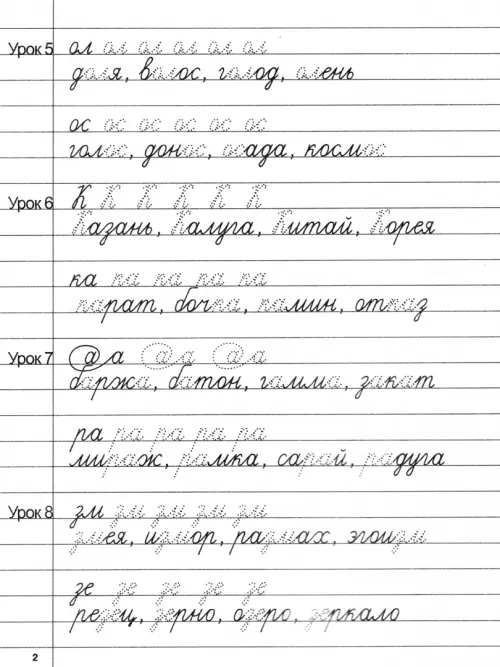 Урок 5 ол ол ол ол ол ол
доля, волос, голод, олень
ос ос ос ос ос ос
голос, донос, осада, космос
Урок 6 К К К К К К
Казань, Калуга, Китай, Корея
ка ка ка ка ка
карат, бочка, камин, отказ
Урок 7 @а @а @а
баржа, батон, гамма, закат
ра ра ра ра ра
мираж, рамка, сарай, радуга
Урок 8 зм зм зм зм зм
змея, измор, размах, эгоизм
зе зе зе зе зе
резец, зерно, озеро, зеркало
2